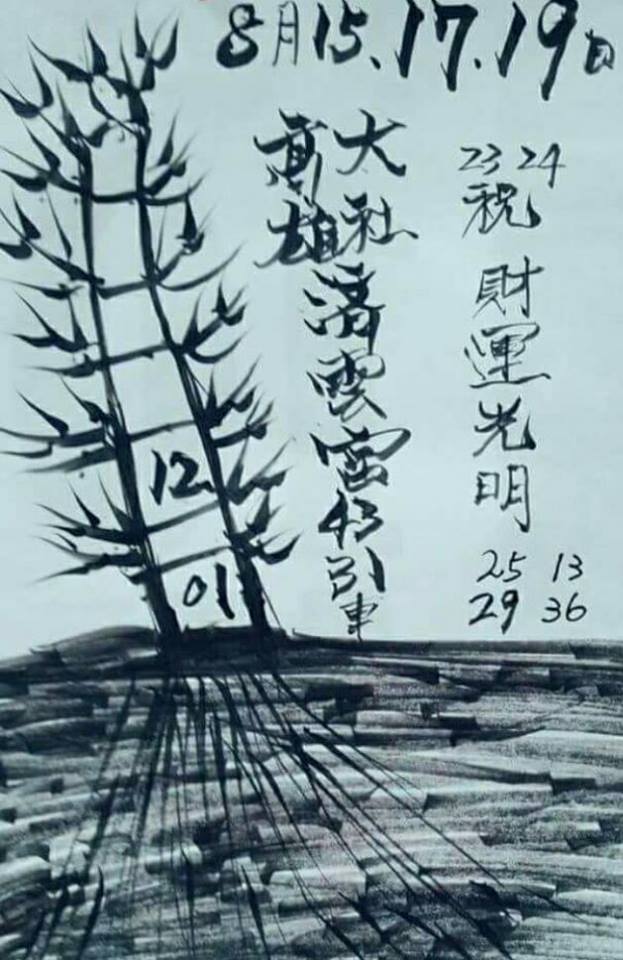 8月15.17.19日
23 24
祝財運光明
25 13
29 36
大社
高雄
清雲宮43引車
12
01